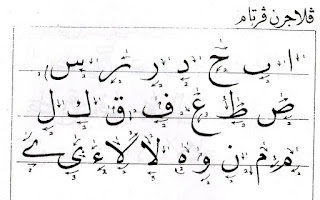 ڤلاجرن ڤرتام
ا ب ح د ر س
ص ط ع ف ق ك ل
م م ن و ه لا لا ء ي ے